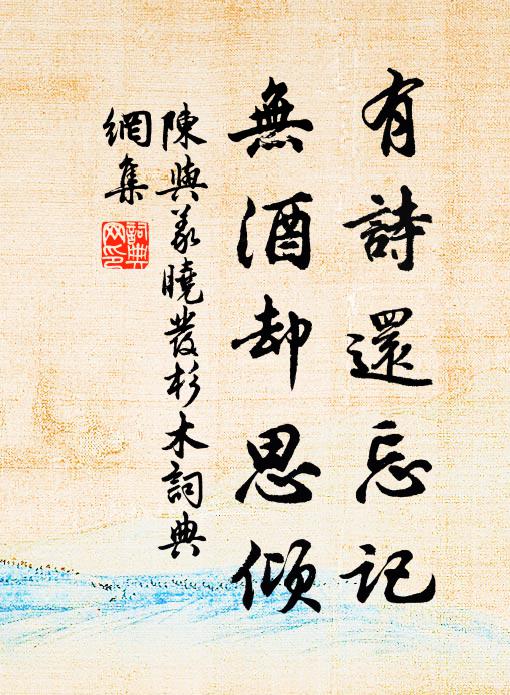 有詩還忘記
無酒却思傾
陳與義曉發杉木詞典
網集
詞典網印